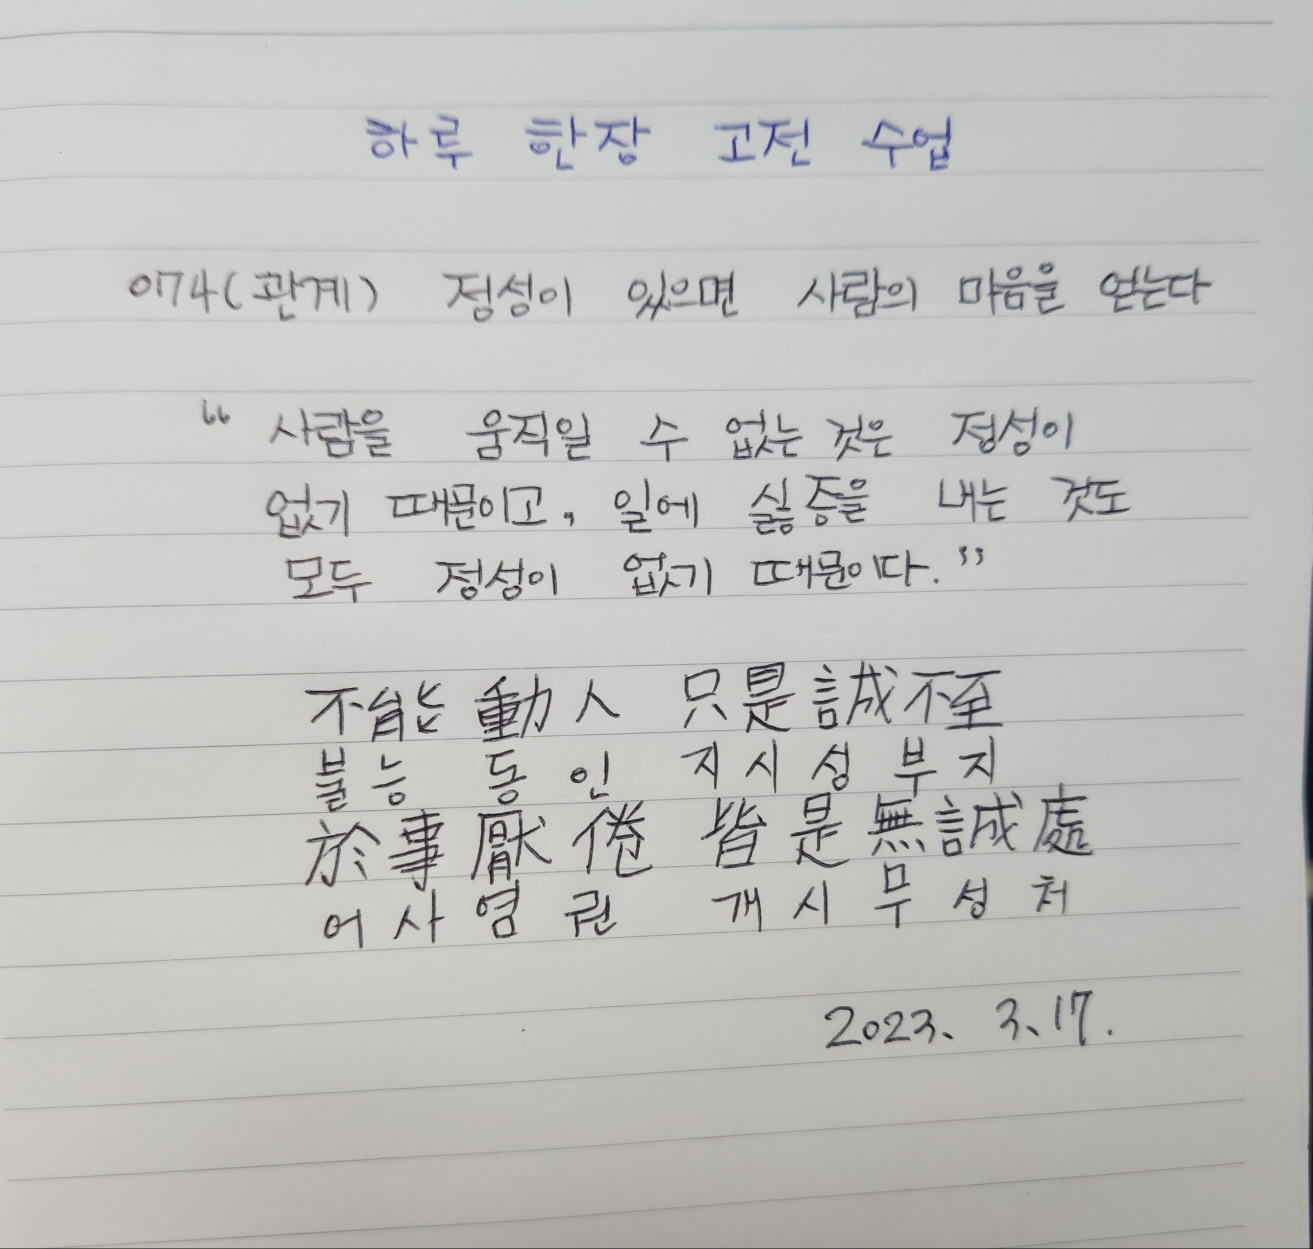 하루 한장 고전 수업
074(관계) 정성이 있으면 사람의 마음을 얻는다
“사람을 움직일 수 없는 것은 정성이
없기 때문이고, 일에 싫증을 내는 것도
모두 정성이 없기 때문이다.”
不能動人 只是誠不至
불능동인 지시성부지
於事厭倦 皆是無誠處
어사염권 개시무성처
2023. 3. 17.